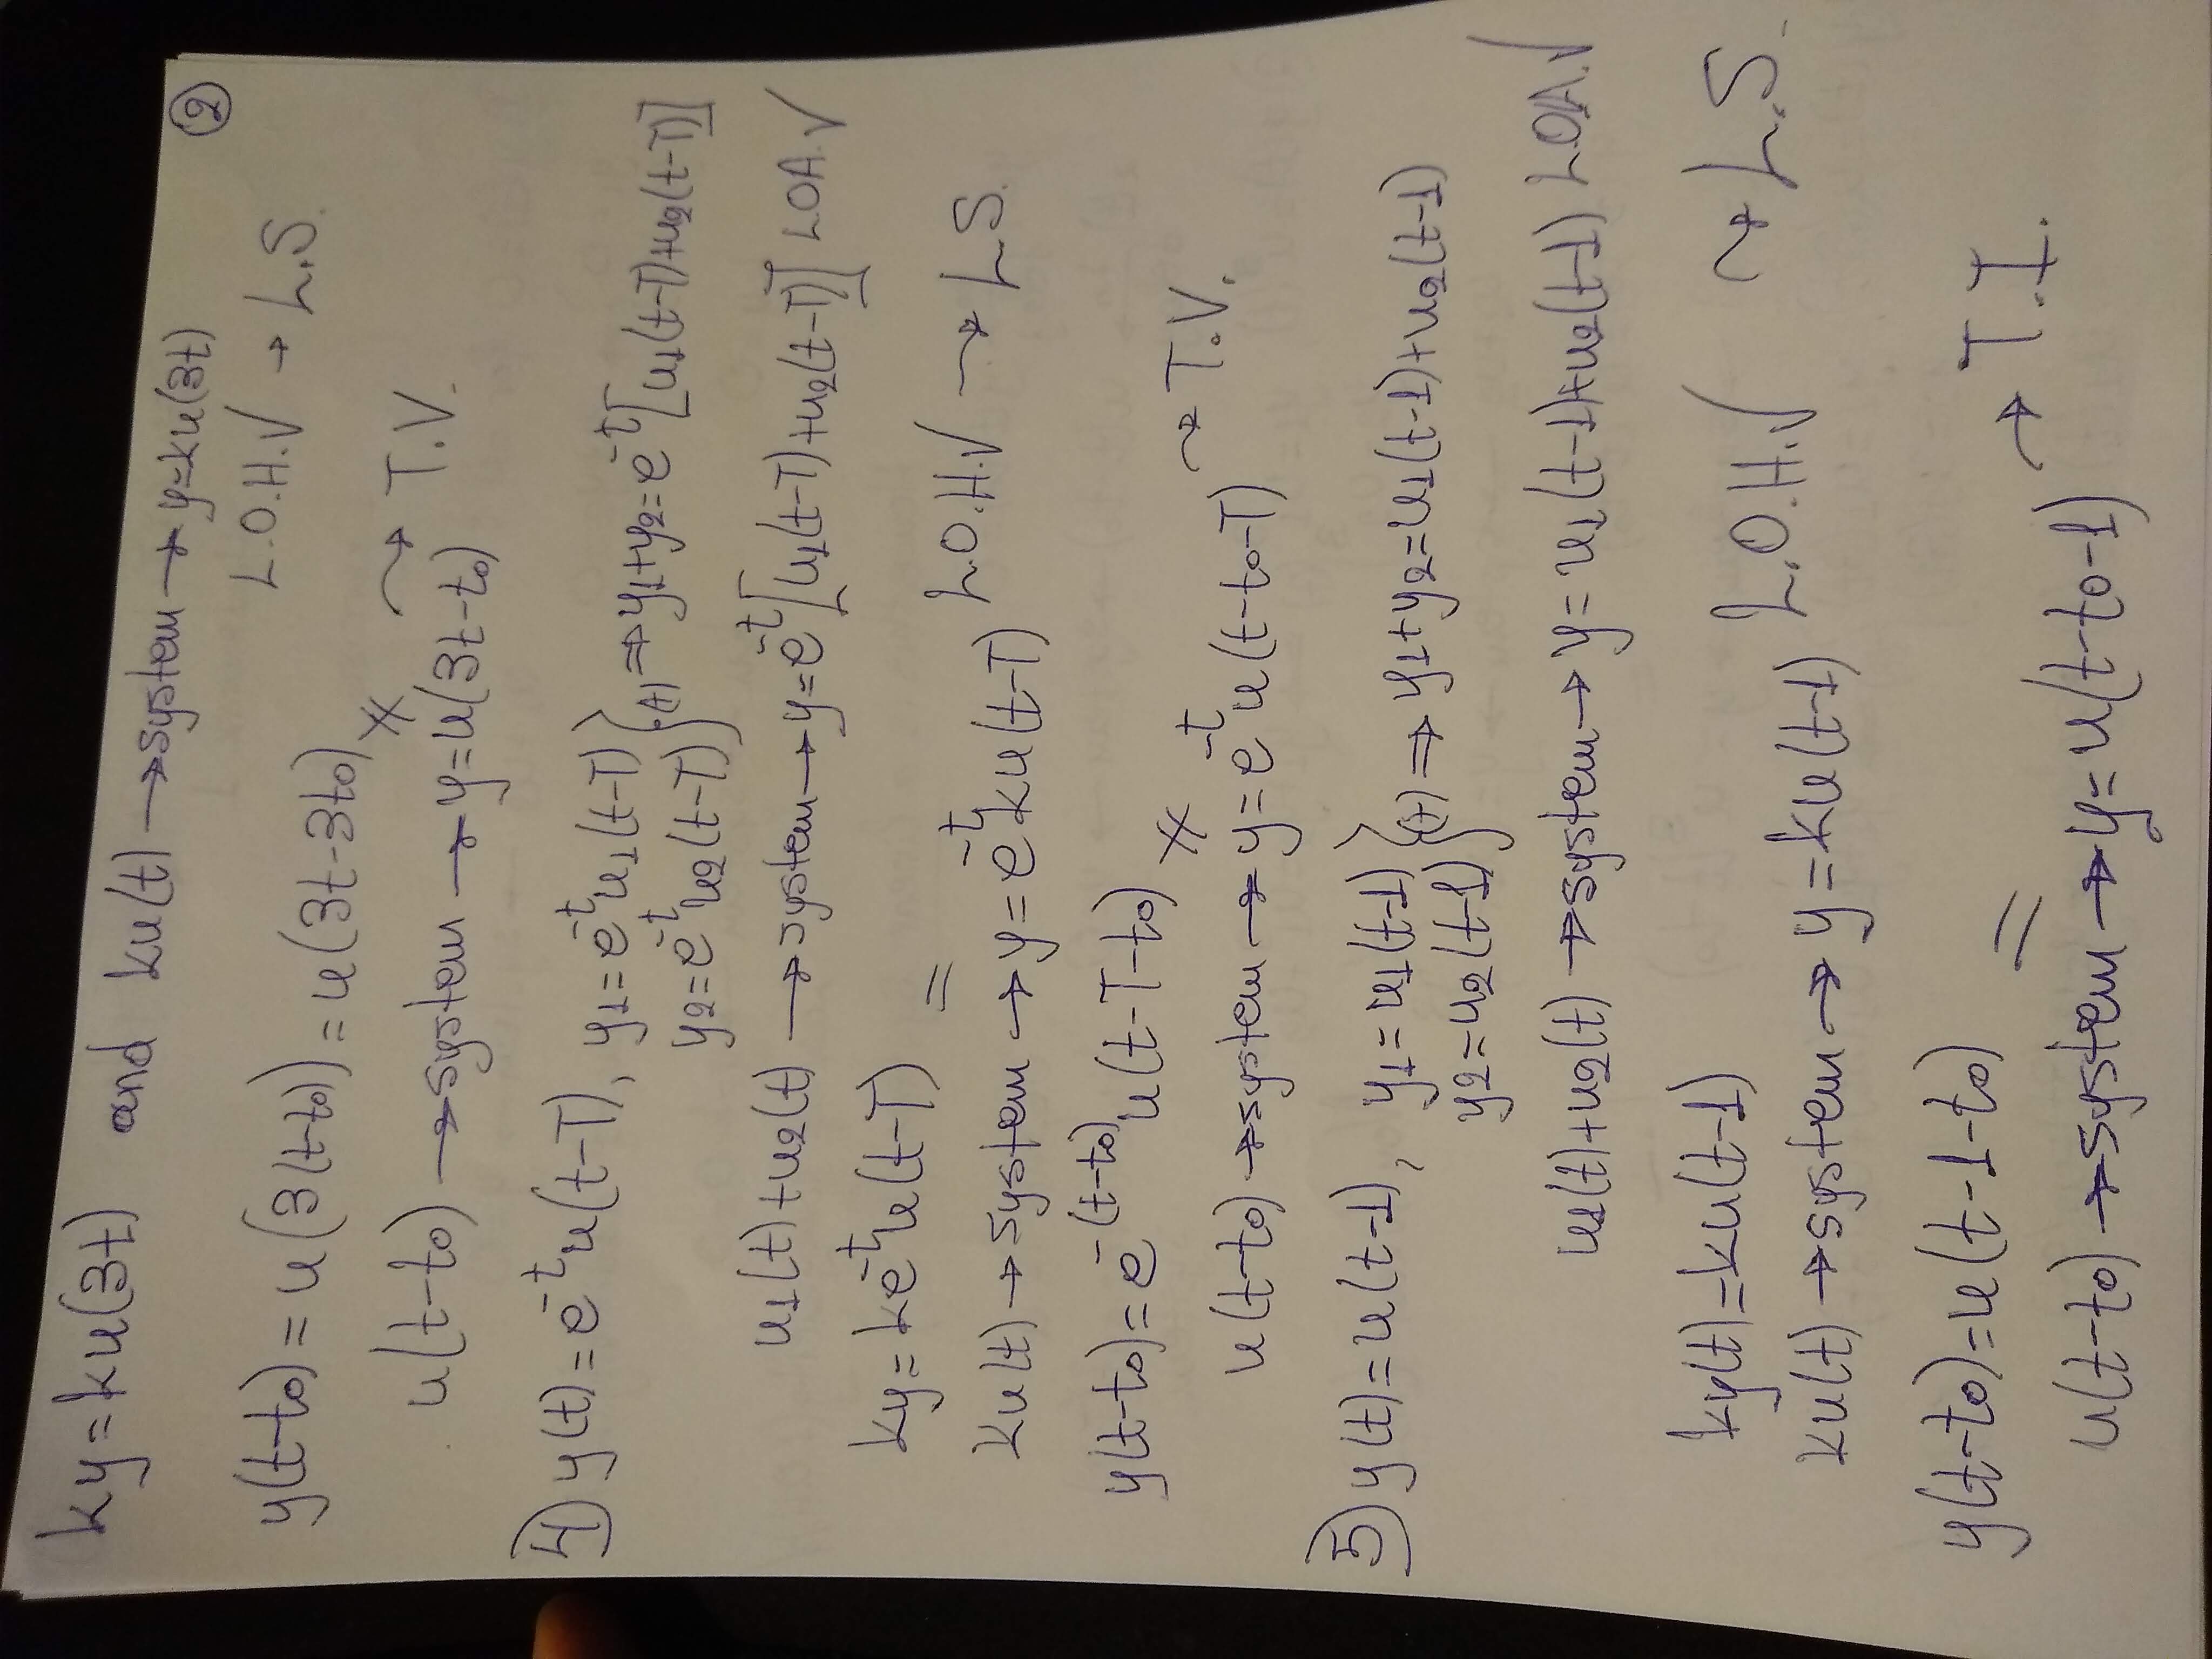 ②
ky=ku(3t) and ku(t)→system→y=ku(3t)
L.O.H.√ → L.S.
y(t-t0)=u(3(t-t0))=u(3t-3t0)
≠
u(t-t0)→system→y=u(3t-t0) → T.V.
4) y(t)=e^-t u(t-T), y1=e^-t u1(t-T) } (+) ⇒ y1+y2=e^-t[u1(t-T)+u2(t-T)]
y2=e^-t u2(t-T)
u1(t)+u2(t)→system→y=e^-t[u1(t-T)+u2(t-T)] L.O.A.√
ky=ke^-t u(t-T)
= L.O.H.√ → L.S.
ku(t)→system→y=e^-t ku(t-T)
y(t-t0)=e^-(t-t0) u(t-T-t0)
≠ → T.V.
u(t-t0)→system→y=e^-t u(t-t0-T)
5) y(t)=u(t-1), y1=u1(t-1) } (+) ⇒ y1+y2=u1(t-1)+u2(t-1)
y2=u2(t-1)
u1(t)+u2(t)→system→y=u1(t-1)+u2(t-1) L.O.A.√
ky(t)=ku(t-1)
L.O.H.√ → L.S.
ku(t)→system→y=ku(t-1)
y(t-t0)=u(t-1-t0)
= → T.I.
u(t-t0)→system→y=u(t-t0-1)